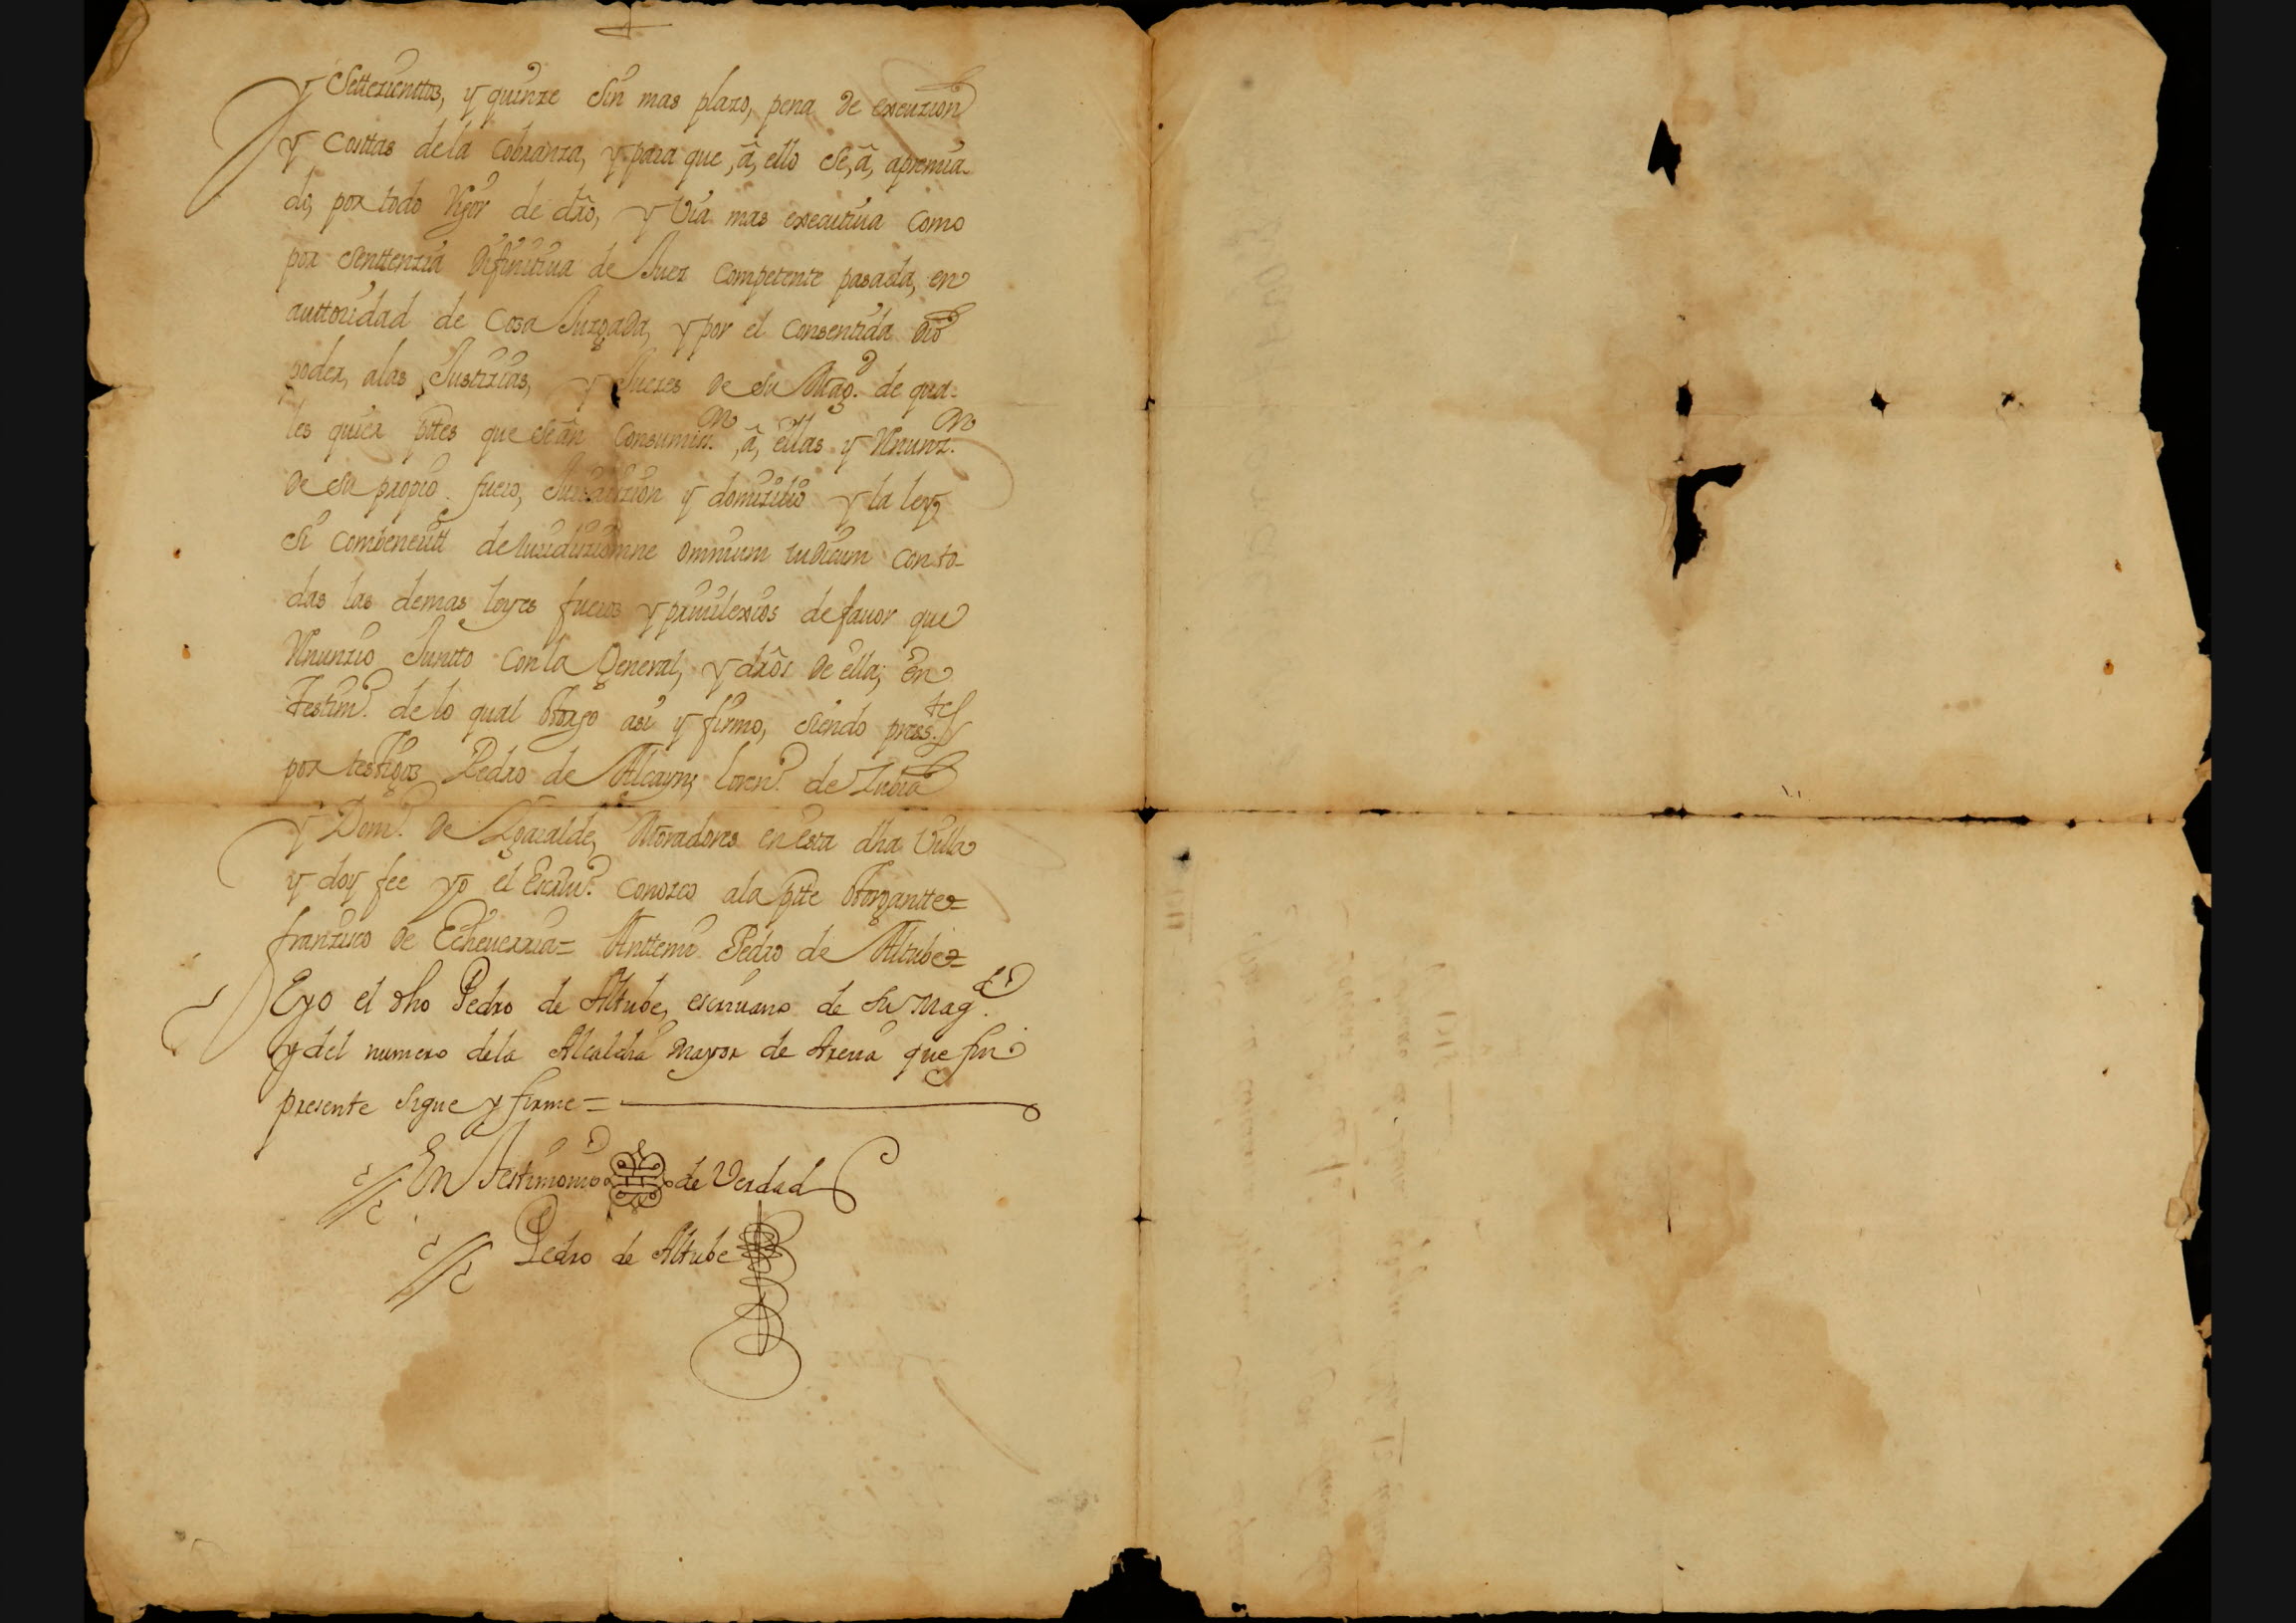 y Settezientos, y quinze sin mas plazo, pena de execuzion
y costtas dela cobranza, y para que, â, ello se, â, apremia-
do, por todo Rigor de dro, y via mas executiua como
por senttenzia difinitiua de Juez competente pasada, en
auttoridad de cosa Juzgada, y por el consentida dio
poder, alas Justizias, y Juezes de su Mag.d de qua-
les quier ptes que seân con sumiss.on, â, ellas y Rnunz.on
de su propio fuero, Jurisdizion y domizilio y la ley,
si combeneritt de Iurisdizionne omnium iudicum con to-
das las demas leyes fueros y priuilexios de fauor que
Rnunzio Juntto con la General, y drôs de ella; en
testim.o de lo qual Otorgo asi y firmo, siendo press.tes
por testigos Pedro de Alcayn, Loren.o de Zubia
y Dom.o de Lgaralde, Moradores en esta dha Villa
y doy fee yo el Escriu.o conozco ala pte Otorgantte=
franzisco de Echeuerria= Anttemi Pedro de Altube=
E yo el dho Pedro de Altube, escriuano de su Mag.d
y del numero dela Alcaldia mayor de Arena que fui
presente signe y firme=
En Testimonio de Verdad
Pedro de Altube